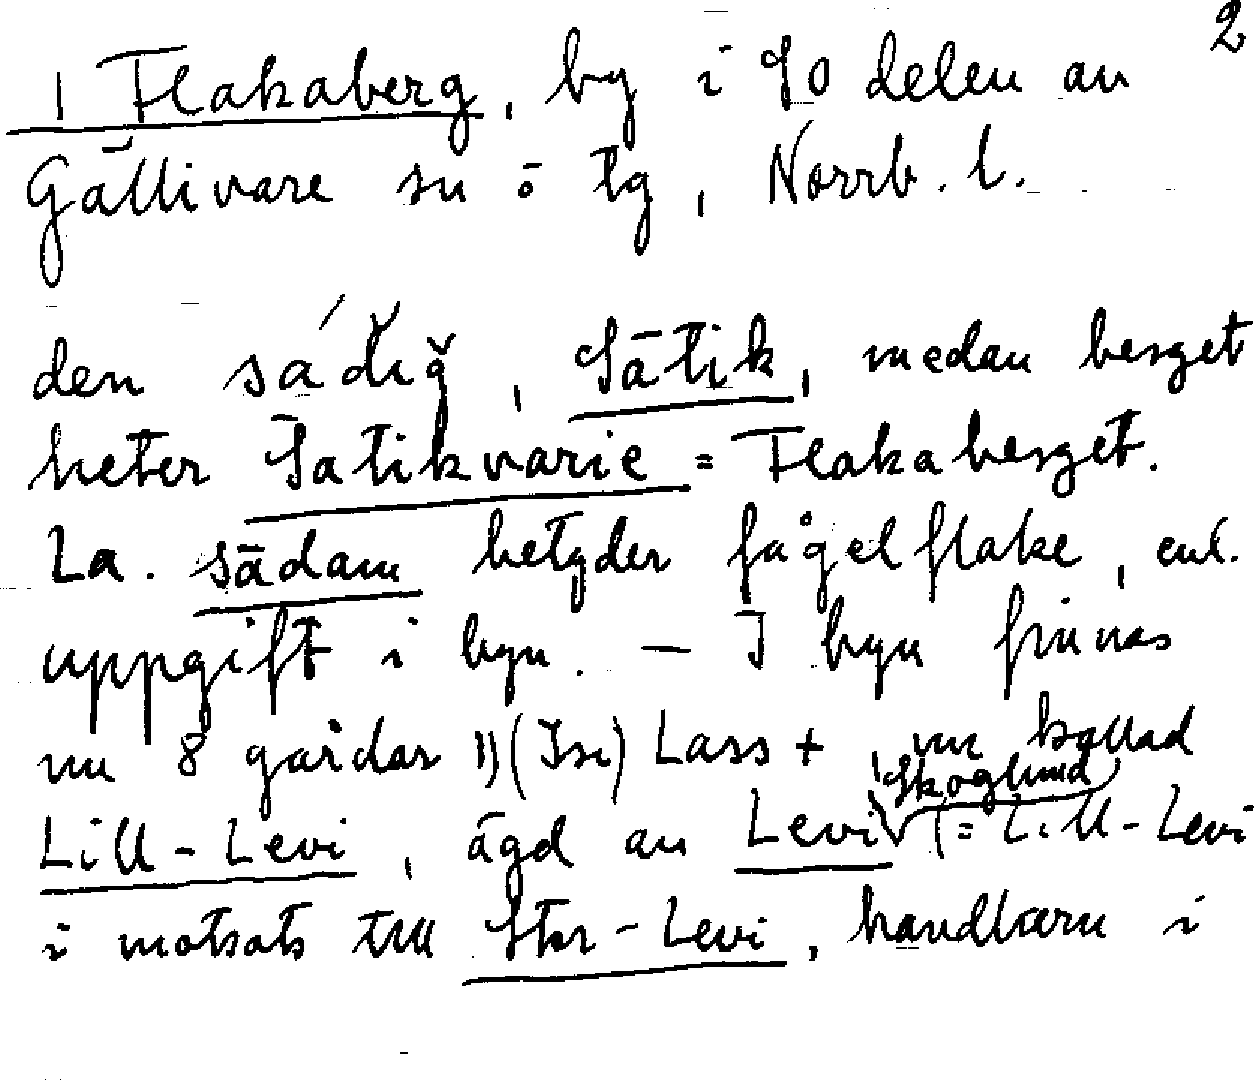 2
1 Flakaberg, by i SO delen av
Gällivare sn o tg, Norrb. l.
den sádìǧ, Sātik, medan berget
heter Sātikvarie = Flakaberget.
La. sādam betyder fågelflake, enl.
uppgift i byn. — I byn finnas
nu 8 gårdar 1) Lass +, nu kallad
Skoglund
Lill-Levi, ägd av Levi (= Lill-Levi
i motsats till Stor-Levi, handlarn i